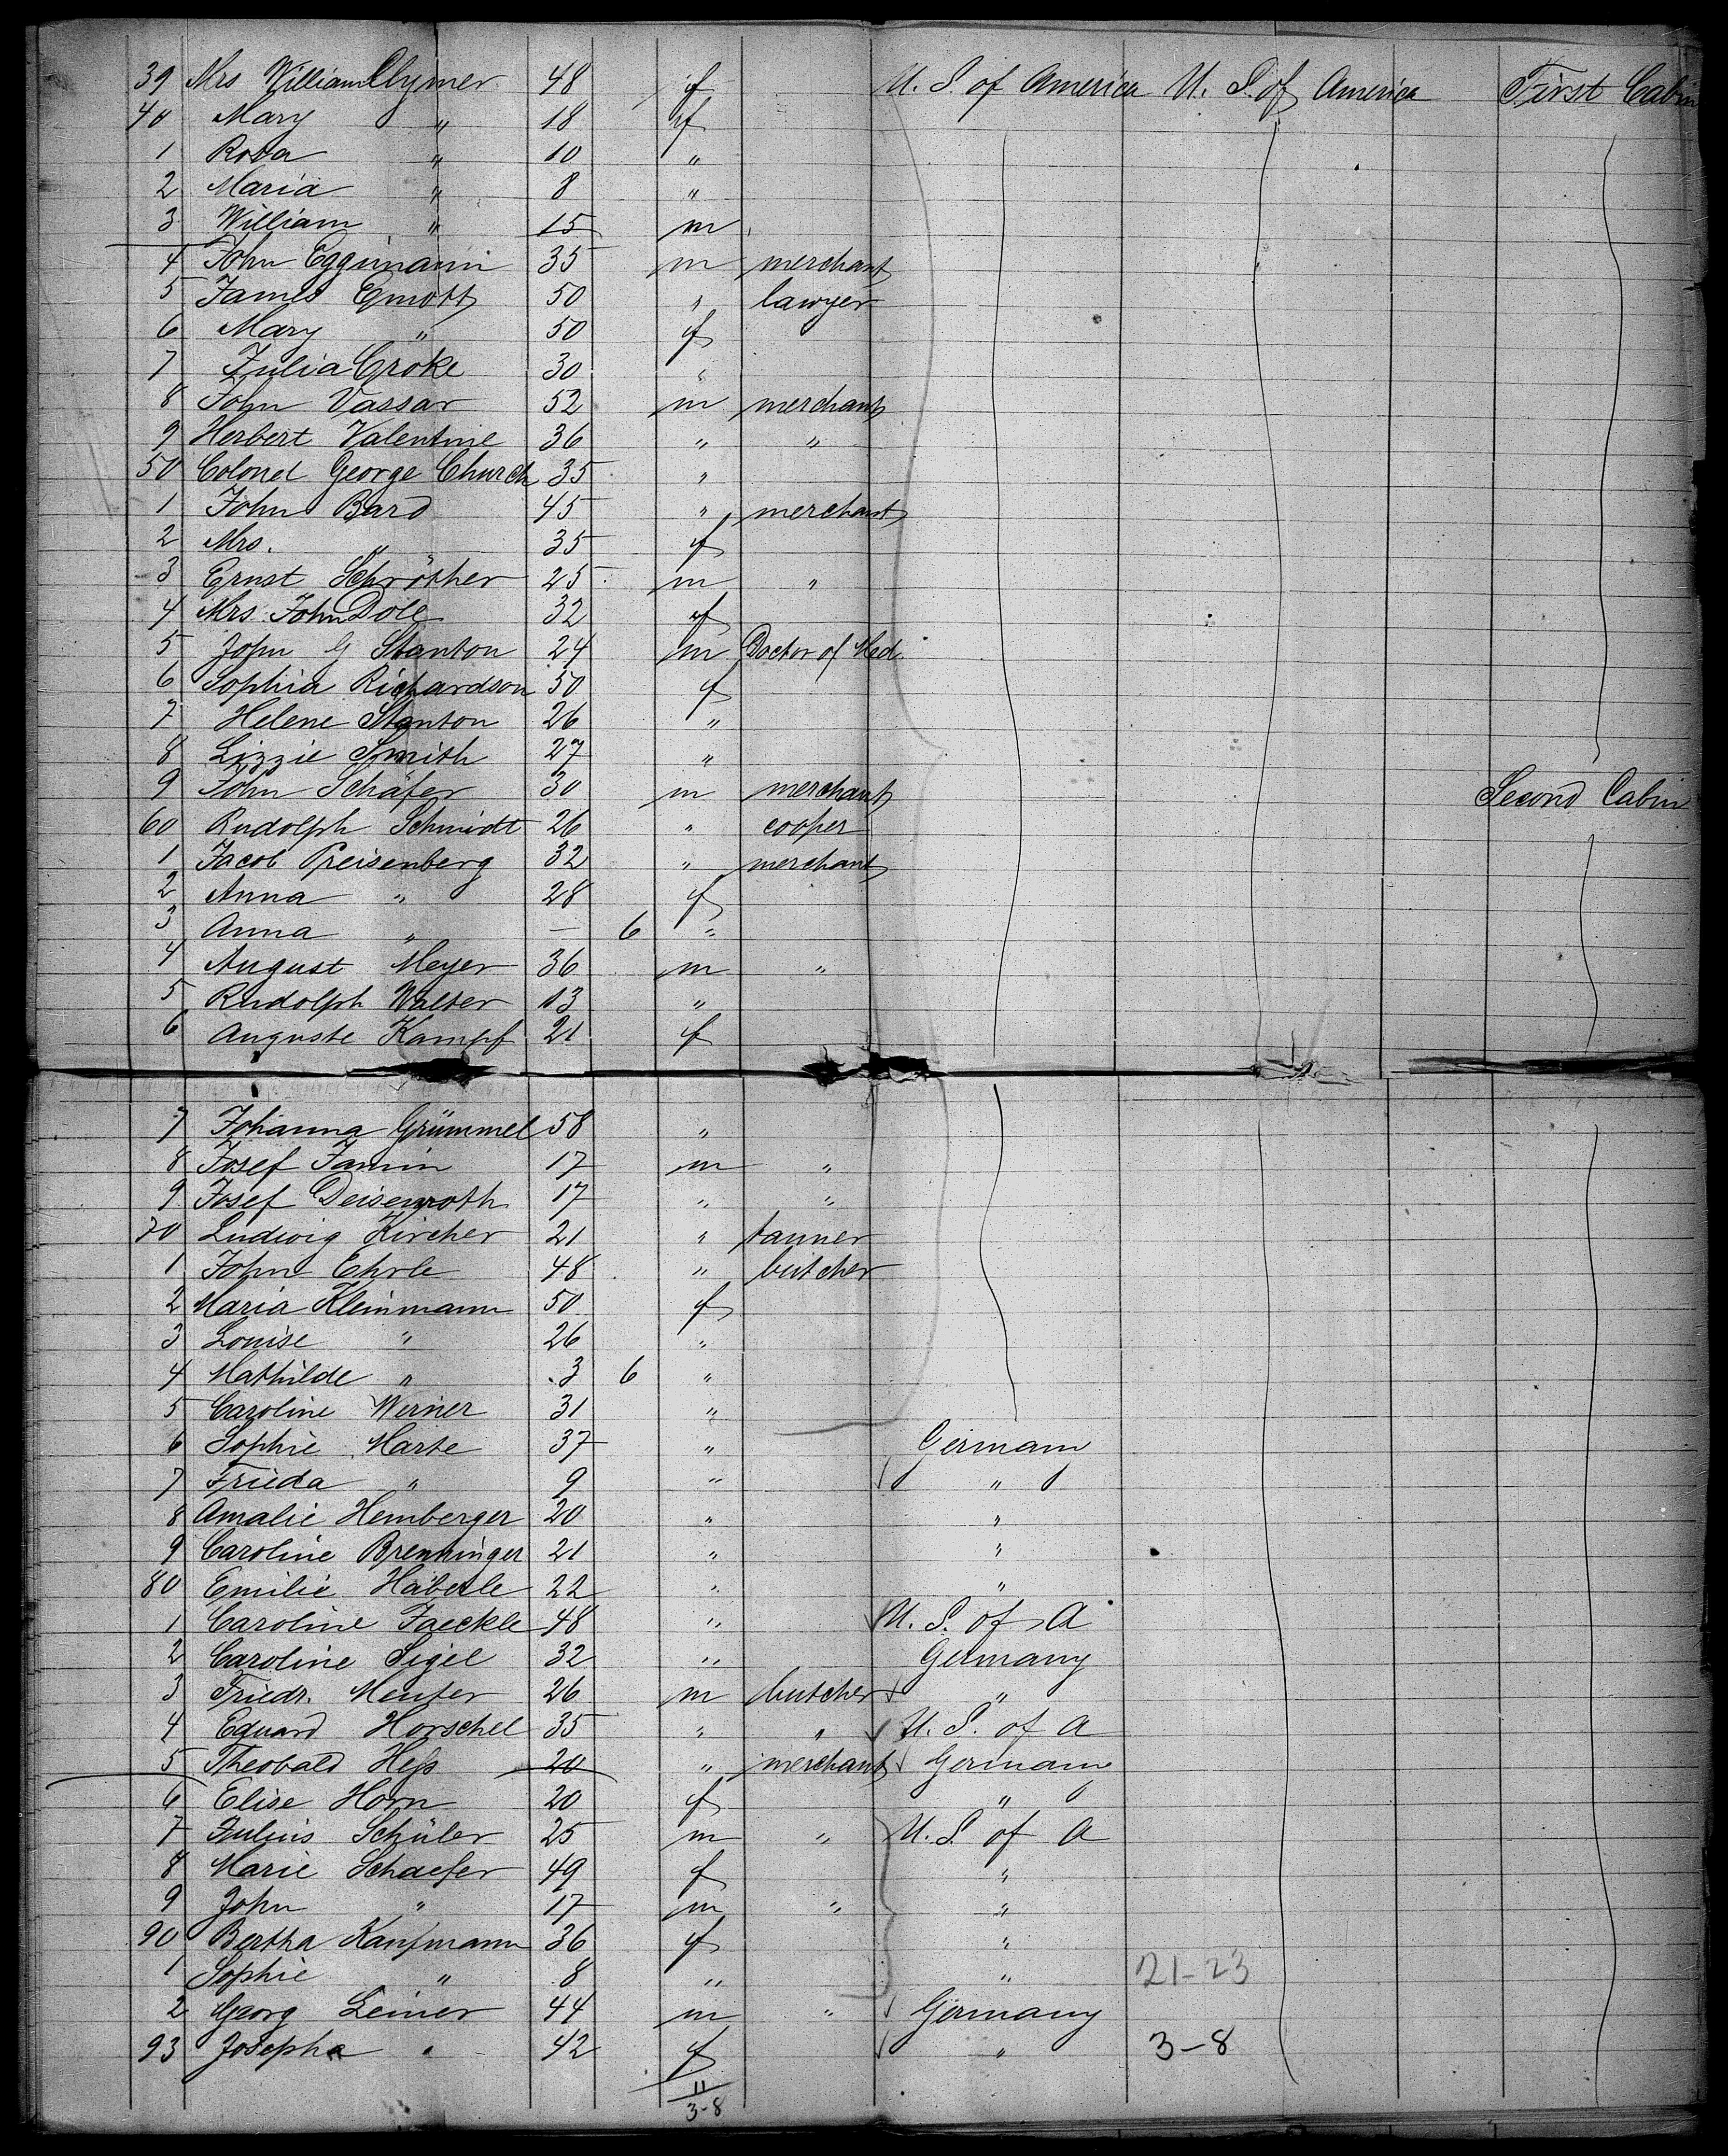 39 Mrs William Clymer 48 f U. S. of America U. S. of America First Cabin
40 Mary " 18 f
1 Rosa " 10 "
2 Maria " 8 "
3 William " 15 m
4 John Eggimann 35 m merchant
5 James Emott 50 " lawyer
6 Mary " 50 f
7 Julia Groke 30 "
8 John Vassar 52 m merchant
9 Herbert Valentine 36 " "
50 Colonel George Church 35 "
1 John Bard 45 " merchant
2 Mrs. " 35 f
3 Ernst Schröther 25 m "
4 Mrs. John Dole 32 f
5 John G Stanton 24 m Doctor of Med.
6 Sophia Richardson 50 f
7 Helene Stanton 26 "
8 Lizzie Smith 27 "
9 John Schäfer 30 m merchant Second Cabin
60 Rudolph Schmidt 26 " cooper
1 Jacob Preisenberg 32 " merchant
2 Anna " 28 f
3 Anna " — 6 "
4 August Meyer 36 m "
5 Rudolph Walter 13 "
6 Auguste Kampf 21 f
7 Johanna Grümmel 58 "
8 Josef Jamin 17 m "
9 Josef Deisenroth 17 " "
70 Ludwig Kircher 21 " tanner
1 John Ehrle 48 " butcher
2 Maria Kleinmann 50 f
3 Louise " 26 "
4 Mathilde " 3 6 "
5 Caroline Werner 31 "
6 Sophie Marte 37 " Germany
7 Frieda " 9 " "
8 Amalie Hemberger 20 " "
9 Caroline Brenninger 21 " "
80 Emilie Häberle 22 " "
1 Caroline Jaeckle 48 " U. S. of A
2 Caroline Sigel 32 " Germany
3 Friedr. Meufer 26 m butcher "
4 Eduard Horschel 35 " " U. S. of A
5 Theobald Heß 20 " merchant Germany
6 Elise Horn 20 f "
7 Julius Schüler 25 m " U. S. of A
8 Marie Schaefer 49 f "
9 John " 17 m " "
90 Bertha Kaufmann 36 f "
1 Sophie " 8 " " 21-23
2 Georg Leiner 44 m " Germany
93 Josepha " 42 f " 3-8
11
3-8